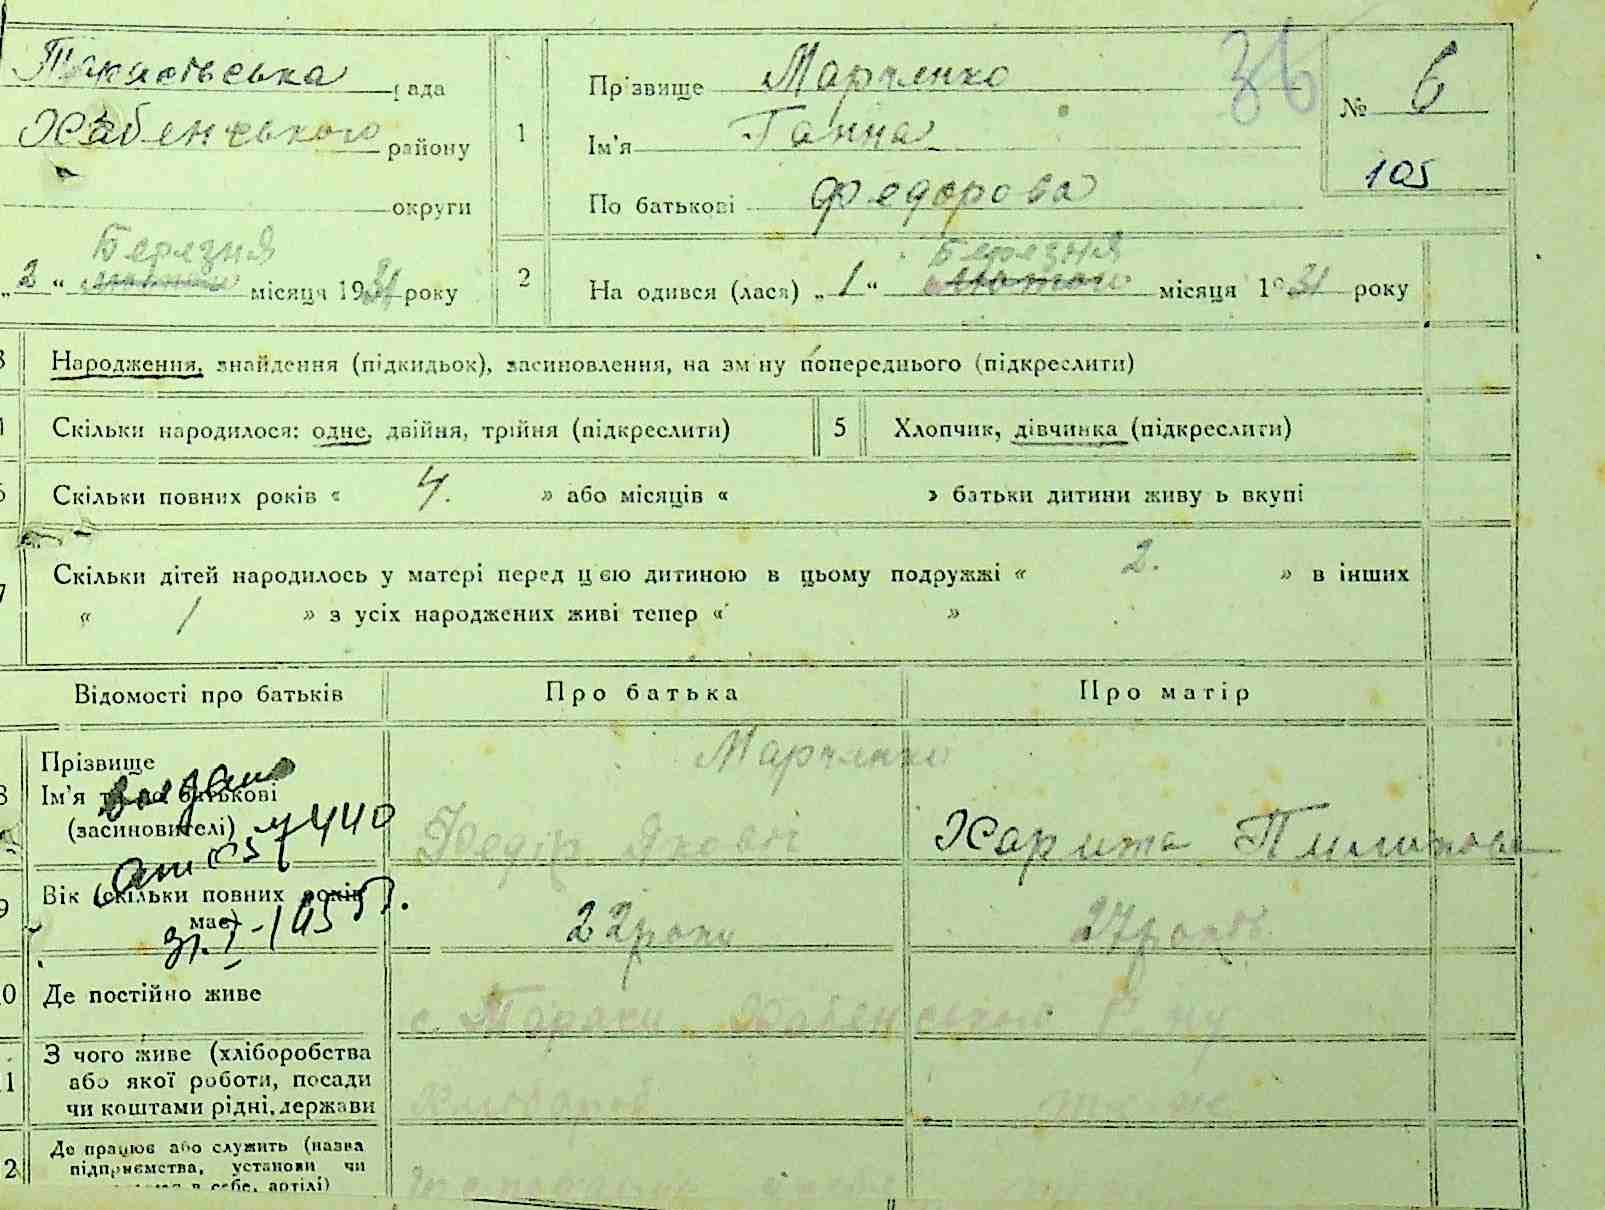 Тарасівська рада
Хабенського району
округи
Березня
„2“ місяця 1931 року
1
Прізвище Марченко
Ім'я Ганна
По батькові Федорова
36
№ 6
105
2
Березня
Народився (лася) „1“ лютого місяця 1931 року
Народження, знайдення (підкидьок), засиновлення, на зміну попереднього (підкреслити)
Скільки народилося: одне, двійня, трійня (підкреслити)
5 Хлопчик, дівчинка (підкреслити)
Скільки повних років « 4. » або місяців « » батьки дитини живуть вкупі
Скільки дітей народилось у матері перед цією дитиною в цьому подружжі « 2. » в інших
« 1 » з усіх народжених живі тепер « »
Відомості про батьків
Про батька
Про матір
Прізвище
Ім'я та по батькові
(засиновителі)
Марченко
Федір
Харита
Вік (скільки повних років
має)
22 роки
27 років
Де постійно живе
с. Тараси Хабенського р-ну
З чого живе (хліборобства
або якої роботи, посади
чи коштами рідні, держави
Хлібороб
Де працює або служить (назва
підприємства, установи чи
в себе, артілі)